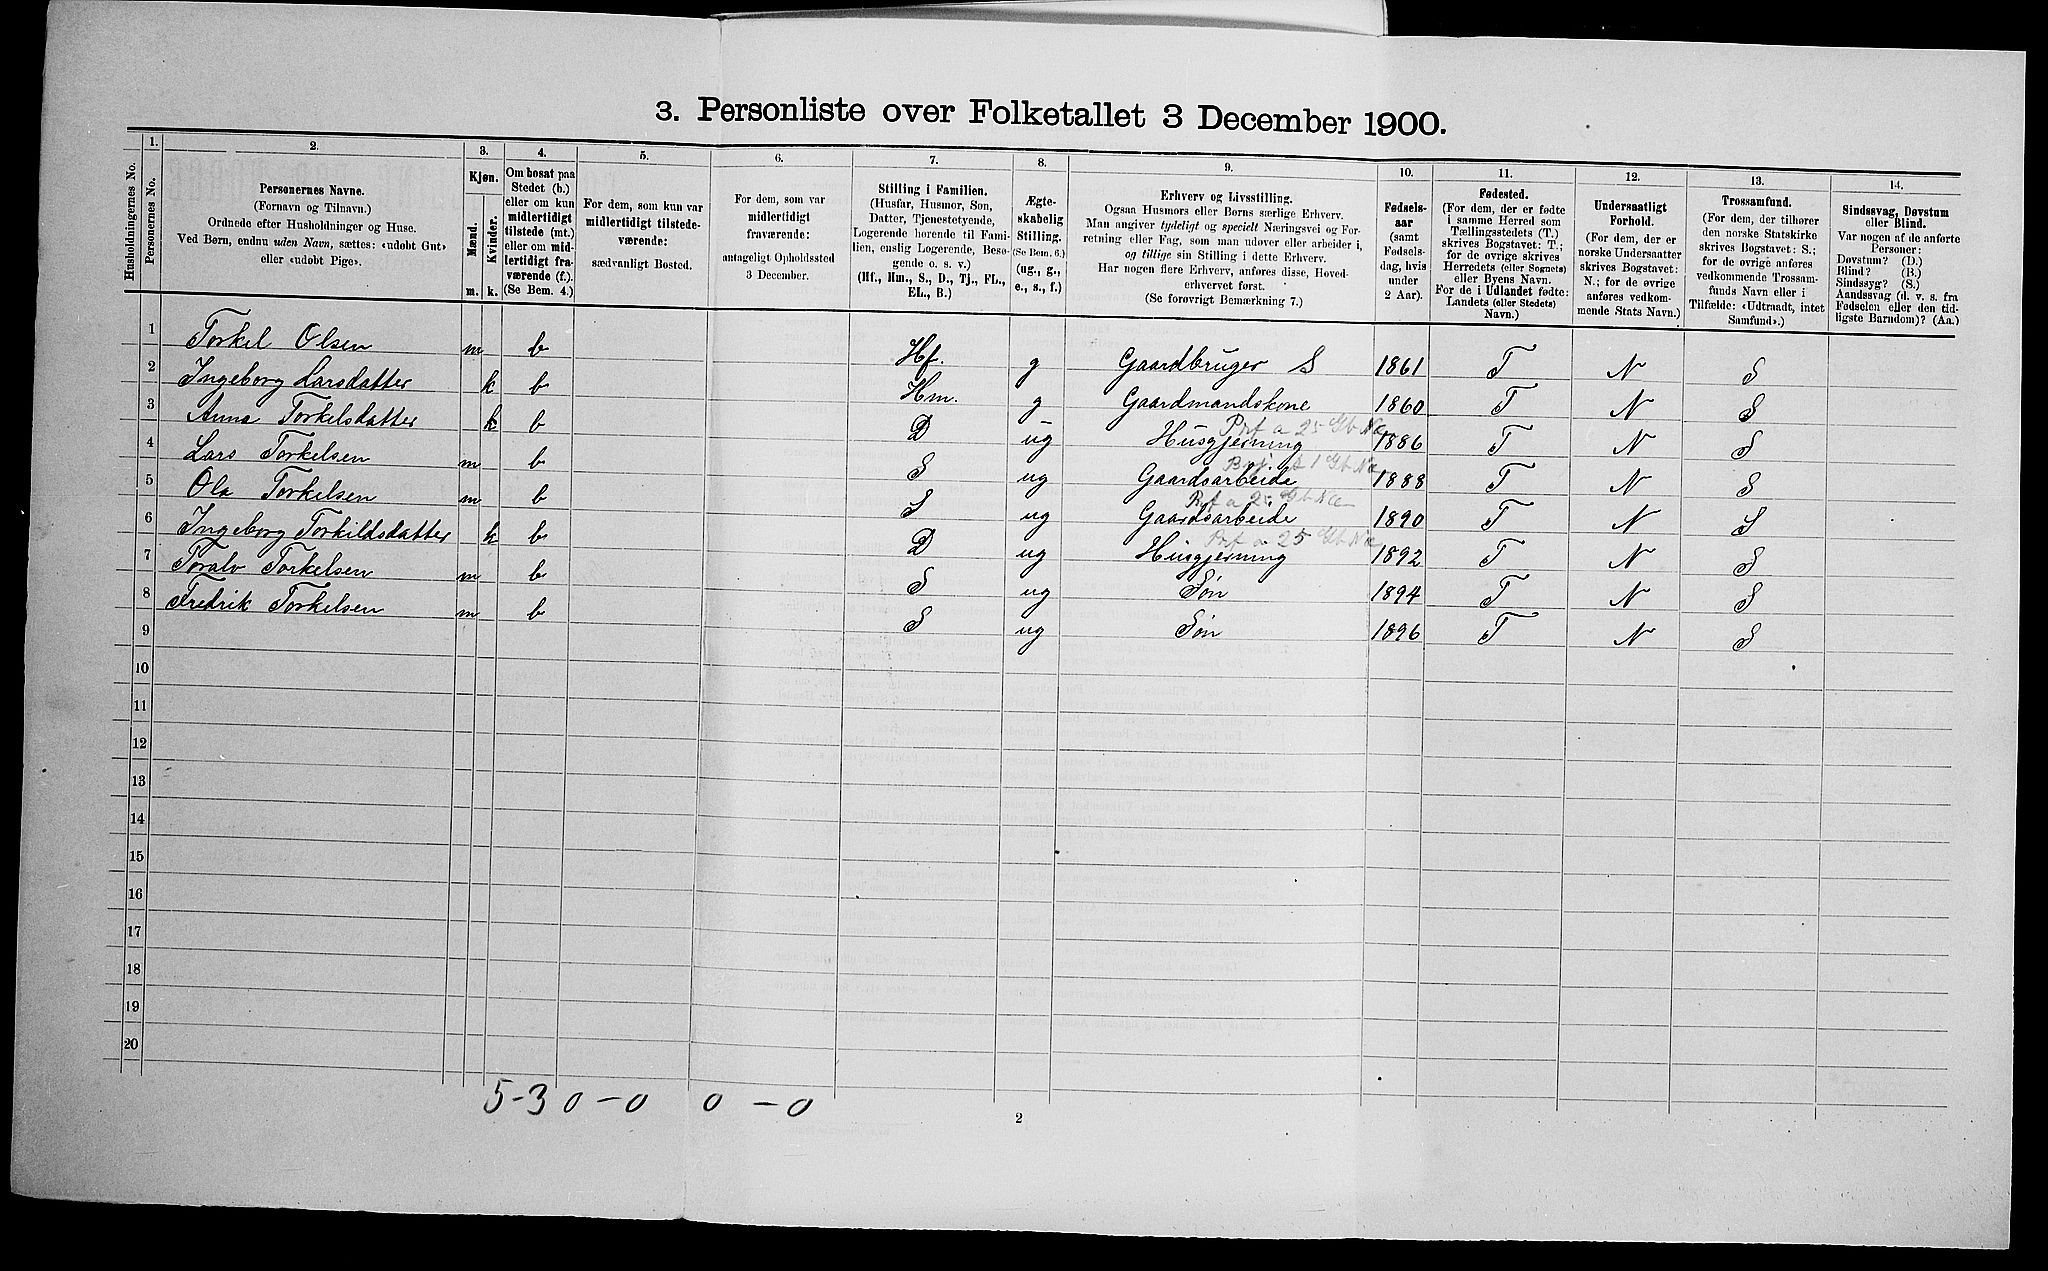 3. Personliste over Folketallet 3 December 1900.
Husholdningernes No.
1. Personernes No.
2. Personernes Navne.
(Fornavn og Tilnavn.)
Ordnede efter Husholdninger og Huse.
Ved Børn, endnu uden Navn, sættes: «udøbt Gut»
eller «udøbt Pige».
3. Kjøn.
Mænd. Kvinder.
m. k.
4. Om bosat paa
Stedet (b.)
eller om kun
midlertidigt
tilstede (mt.)
eller om mid-
lertidigt fra-
værende (f.).
(Se Bem. 4.)
5. For dem, som kun var
midlertidigt tilstede-
værende:
sædvanligt Bosted.
6. For dem, som var
midlertidigt
fraværende:
antageligt Opholdssted
3 December.
7. Stilling i Familien.
(Husfar, Husmor, Søn,
Datter, Tjenestetyende,
Logerende hørende til Fami-
lien, enslig Logerende, Besø-
gende o. s. v.)
(Hf., Hm., S., D., Tj., FL.,
EL., B.)
8. Ægte-
skabelig
Stilling.
(Se Bem. 6.)
(ug., g.,
e., s., f.)
9. Erhverv og Livsstilling.
Ogsaa Husmors eller Børns særlige Erhverv.
Man angiver tydeligt og specielt Næringsvei og For-
retning eller Fag, som man udøver eller arbeider i,
og tillige sin Stilling i dette Erhverv.
Har nogen flere Erhverv, anføres disse, Hoved-
erhvervet først.
(Se forøvrigt Bemærkning 7.)
10. Fødsels-
aar
(samt
Fødsels-
dag, hvis
under
2 Aar).
11. Fødested.
(For dem, der er fødte
i samme Herred som
Tællingsstedets (T.)
skrives Bogstavet: T.;
for de øvrige skrives
Herredets (eller Sognets)
eller Byens Navn.
For de i Udlandet fødte:
Landets (eller Stedets)
Navn.)
12. Undersaatligt
Forhold.
(For dem, der er
norske Undersaatter
skrives Bogstavet:
N.; for de øvrige
anføres vedkom-
mende Stats Navn.)
13. Trossamfund.
(For dem, der tilhører
den norske Statskirke
skrives Bogstavet: S.;
for de øvrige anføres
vedkommende Trossam-
funds Navn eller i
Tilfælde: «Udtraadt, intet
Samfund».)
14. Sindssvag, Døvstum
eller Blind.
Var nogen af de anførte
Personer:
Døvstum? (D.)
Blind? (B.)
Sindssyg? (S.)
Aandssvag (d. v. s. fra
Fødselen eller den tid-
ligste Barndom)? (Aa.)
1 Torkel Olsen m b Hf. g Gaardbruger S 1861 T N S
2 Ingeborg Larsdatter k b Hm. g Gaardmandskone 1860 T N S
3 Anna Torkelsdatter k b D ug Husgjerning 1886 T N S
4 Lars Torkelsen m b S ug Gaardsarbeide 1888 T N S
5 Ola Torkelsen m b S ug Gaardsarbeide 1890 T N S
6 Ingeborg Torkildsdatter k b D ug Husgjerning 1892 T N S
7 Toralv Torkelsen m b S ug Søn 1894 T N S
8 Fredrik Torkelsen m b S ug Søn 1896 T N S
9
10
11
12
13
14
15
16
17
18
19
20
5-3 0-0 0-0
2